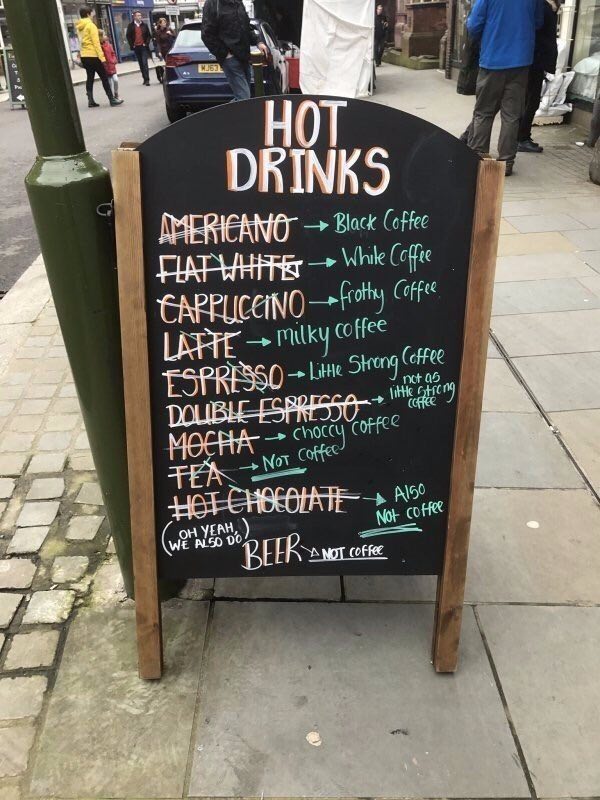 HOT
DRINKS
AMERICANO → Black Coffee
FLAT WHITE → White Coffee
CAPPUCCINO → frothy Coffee
LATTE → milky coffee
ESPRESSO → Little Strong Coffee
DOUBLE ESPRESSO → not as little strong coffee
MOCHA → choccy coffee
TEA → NOT coffee
HOT CHOCOLATE → Also Not coffee
(OH YEAH, WE ALSO DO) BEER → NOT coffee
WJ63